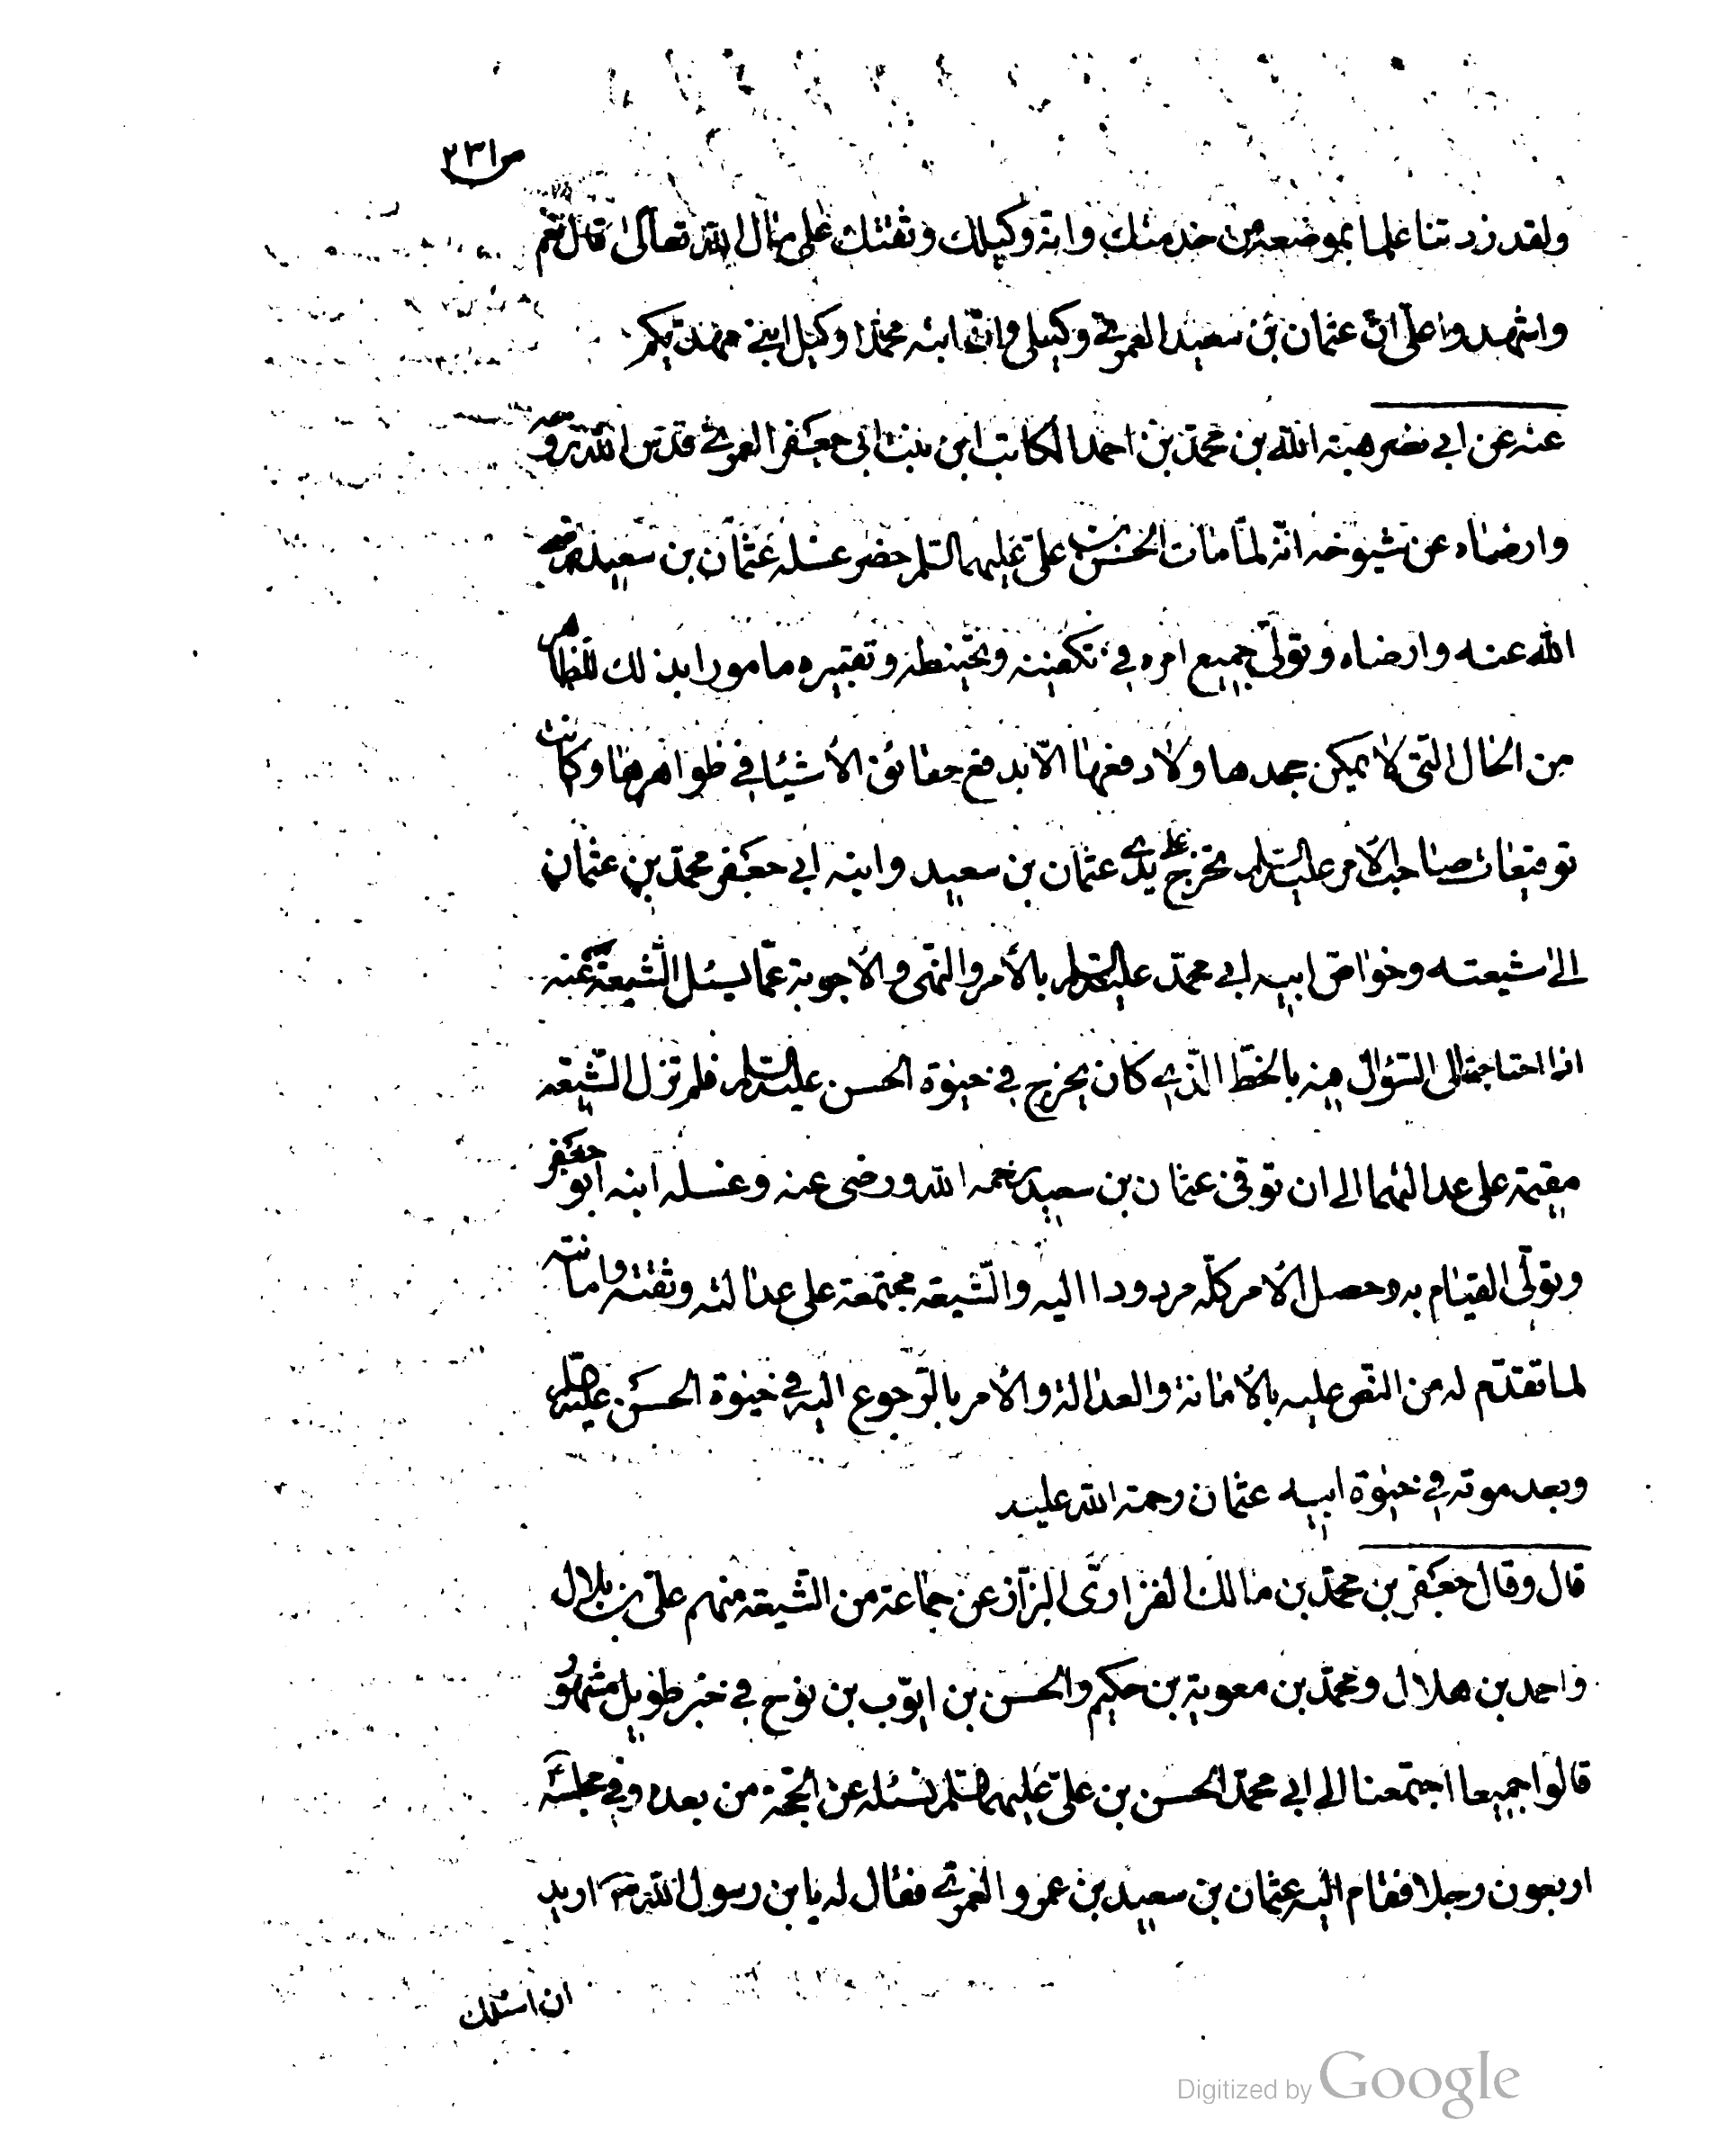 ص ٢٣١
ولقد زدتنا علما بموضعه من خدمتك وانه وكيلك وثقتك على مال الله تعالى قال نعم
واشهدوا على ان عثمان بن سعيد العمري وكيلي وان ابنه محمدا وكيل ابني مهديكم
عنه عن ابي نصر هبة الله بن محمد بن احمد الكاتب ابن بنت ابي جعفر العمري قدس الله روحه
وارضاه عن شيوخه انه لما مات الحسن بن علي عليهما السلم حضر غسله عثمان بن سعيد رضي
الله عنه وارضاه وتولى جميع امره في تكفينه وتحنيطه وتقبيره مامورا بذلك للظاهر
من الحال التي لا يمكن جحدها ولا دفعها الا بدفع حقائق الأشيا في ظواهرها وكانت
توقيعات صاحب الأمر عليه السلم تخرج على يدي عثمان بن سعيد وابنه ابي جعفر محمد بن عثمان
الى شيعته وخواص ابيه ابي محمد عليه السلم بالأمر والنهى والأجوبة عما يسئل الشيعة عنه
اذا احتاجت الى السؤال فيه بالخط الذي كان يخرج في حيوة الحسن عليه السلم فلم تزل الشيعه
مقيمة على عدالتهما الى ان توفي عثمان بن سعيد رحمه الله ورضى عنه وغسله ابنه ابو جعفر
وتولى القيام به وحصل الأمر كله مردودا اليه والشيعه مجتمعة على عدالته وثقته وامانته
لما تقدم له من النص عليه بالأمانة والعدالة والأمر بالرجوع اليه في حيوة الحسن عليه السلم
وبعد موته في حيوة ابيه عثمان رحمة الله عليه
قال وقال جعفر بن محمد بن مالك الفزاري البزاز عن جماعة من الشيعه منهم علي بن بلال
واحمد بن هلال ومحمد بن معوية بن حكيم والحسن بن ايوب بن نوح في خبر طويل مشهور
قالوا جميعا اجتمعنا الى ابي محمد الحسن بن علي عليهما السلم نسئله عن الحجة من بعده وفي مجلسه
اربعون رجلا فقام اليه عثمان بن سعيد بن عمرو العمري فقال له يا بن رسول الله اريد
ان اسئلك
Digitized by Google